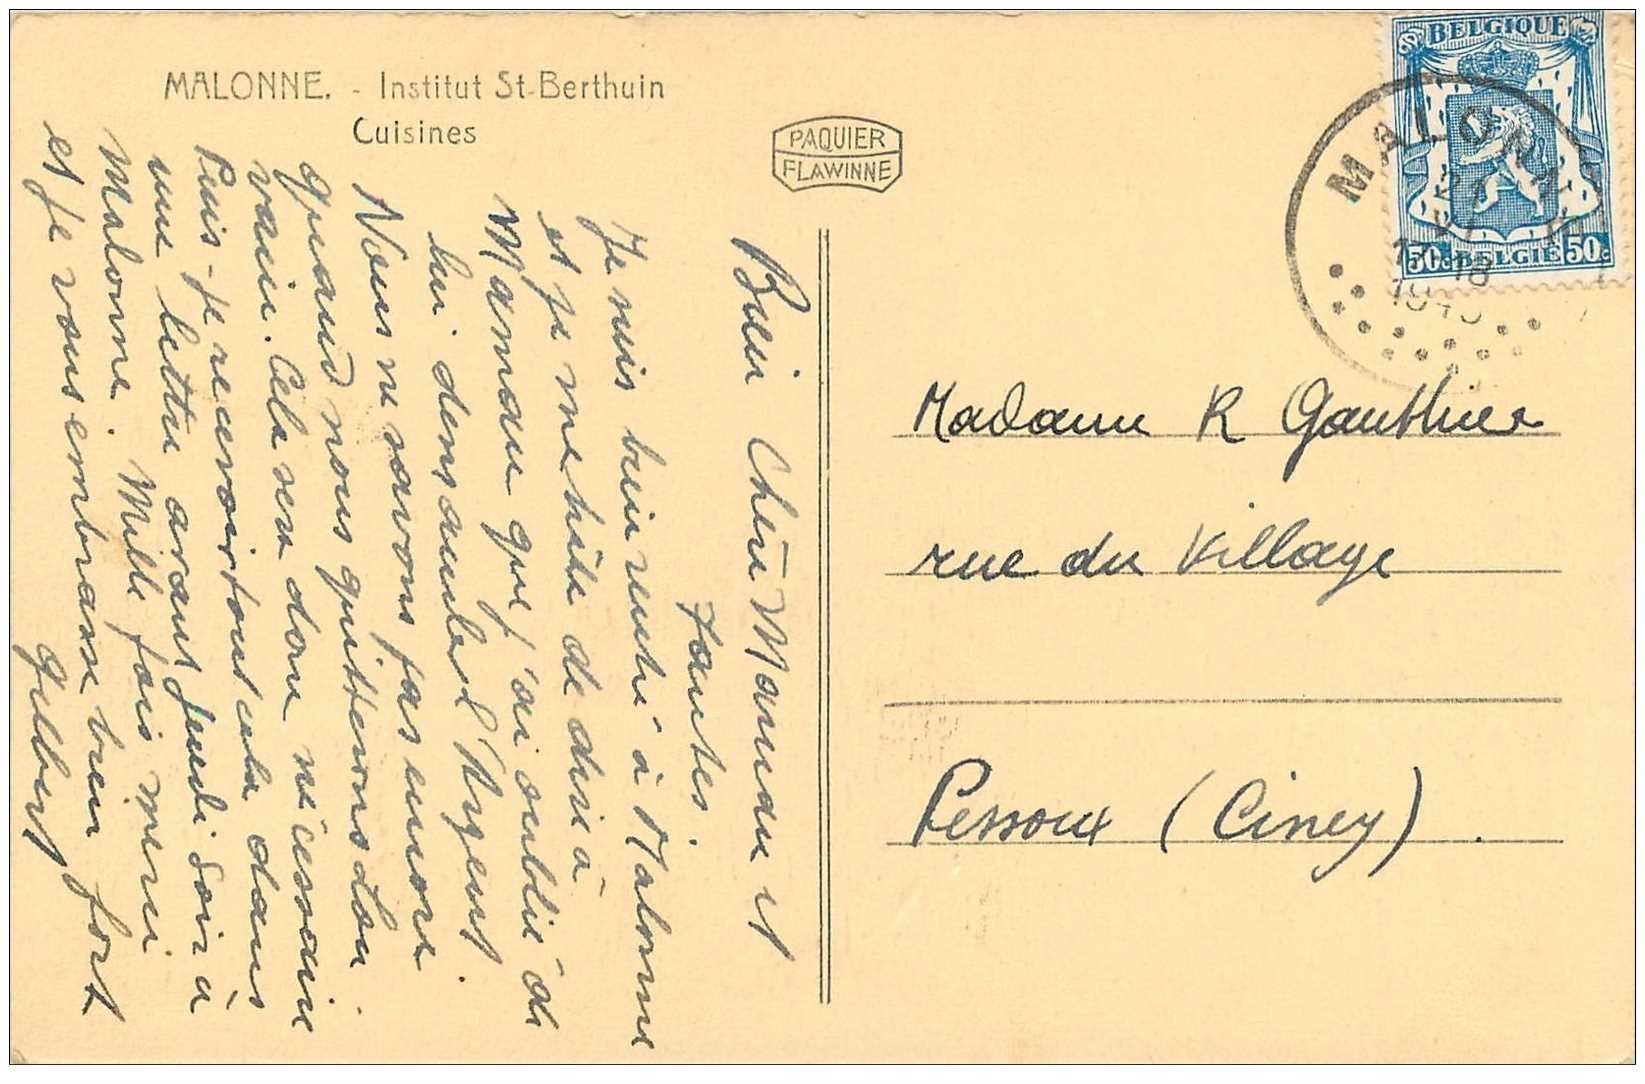 MALONNE. - Institut St-Berthuin
Cuisines
PAQUIER
FLAWINNE
BELGIQUE
50c BELGIË 50c
MALONNE
18
Bien Chère Maman et
tantes.
Je suis bien rentré à Malonne
et je me hâte de dire à
Maman que j'ai oublié de
lui demander l'argent.
Nous ne savons pas encore
quand nous quitterons Lou
vain. Cela sera donc nécessaire
Puis-je recevoir tout cela dans
une lettre avant jeudi soir à
Malonne. Mille fois merci
et je vous embrasse bien fort
Gilbert
Madame R Gauthier
rue du Village
Pessoux (Ciney).